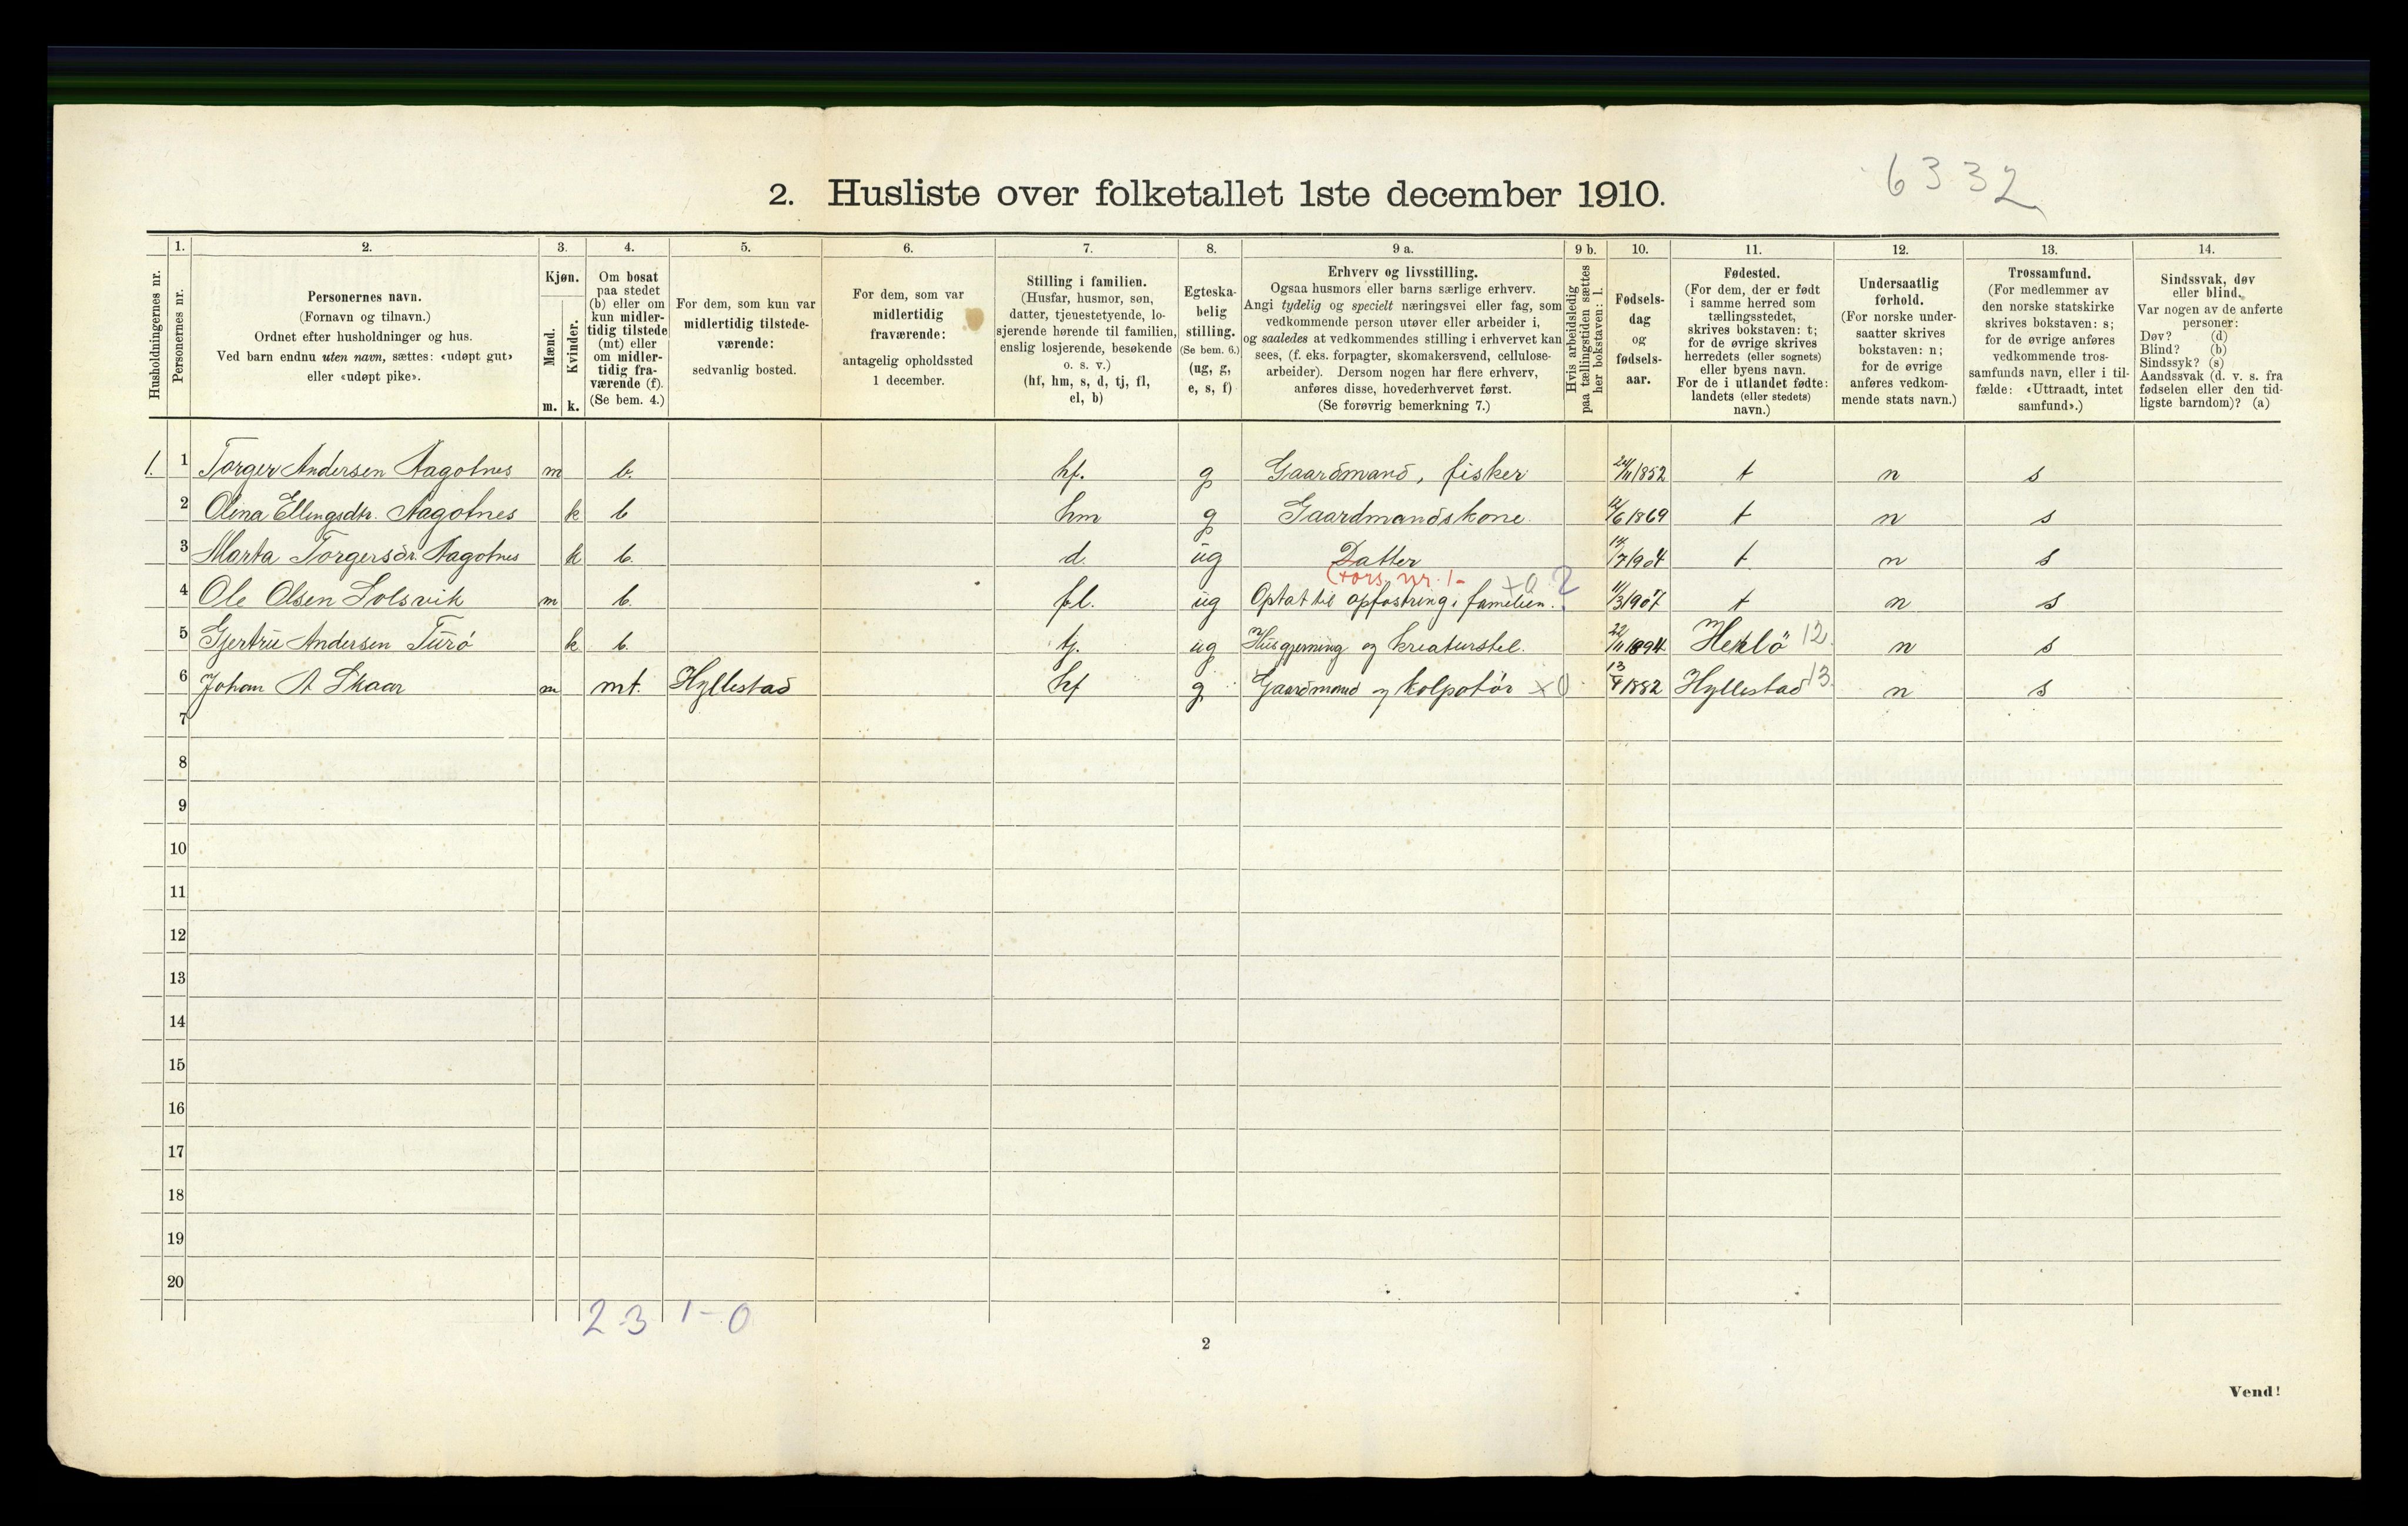 6332
2. Husliste over folketallet 1ste december 1910.
Husholdningernes nr.
1.
Personernes nr.
2.
Personernes navn.
(Fornavn og tilnavn.)
Ordnet efter husholdninger og hus.
Ved barn endnu uten navn, sættes: «udøpt gut»
eller «udøpt pike».
3.
Kjøn.
Mænd.
Kvinder.
m. k.
4.
Om bosat
paa stedet
(b) eller om
kun midler-
tidig tilstede
(mt) eller
om midler-
tidig fra-
værende (f).
(Se bem. 4.)
5.
For dem, som kun var
midlertidig tilstede-
værende:
sedvanlig bosted.
6.
For dem, som var
midlertidig
fraværende:
antagelig opholdssted
1 december.
7.
Stilling i familien.
(Husfar, husmor, søn,
datter, tjenestetyende, lo-
sjerende hørende til familien,
enslig losjerende, besøkende
o. s. v.)
(hf, hm, s, d, tj, fl,
el, b)
8.
Egteska-
belig
stilling.
(Se bem. 6.)
(ug, g,
e, s, f)
9 a.
Erhverv og livsstilling.
Ogsaa husmors eller barns særlige erhverv.
Angi tydelig og specielt næringsvei eller fag, som
vedkommende person utøver eller arbeider i,
og saaledes at vedkommendes stilling i erhvervet kan
sees, (f. eks. forpagter, skomakersvend, cellulose-
arbeider). Dersom nogen har flere erhverv,
anføres disse, hovederhvervet først.
(Se forøvrig bemerkning 7.)
9 b.
Hvis arbeidsledig
paa tællingstiden sættes
her bokstaven: l.
10.
Fødsels-
dag
og
fødsels-
aar.
11.
Fødested.
(For dem, der er født
i samme herred som
tællingsstedet,
skrives bokstaven: t;
for de øvrige skrives
herredets (eller sognets)
eller byens navn.
For de i utlandet fødte:
landets (eller stedets)
navn.)
12.
Undersaatlig
forhold.
(For norske under-
saatter skrives
bokstaven: n;
for de øvrige
anføres vedkom-
mende stats navn.)
13.
Trossamfund.
(For medlemmer av
den norske statskirke
skrives bokstaven: s;
for de øvrige anføres
vedkommende tros-
samfunds navn, eller i til-
fælde: «Uttraadt, intet
samfund».)
14.
Sindssvak, døv
eller blind.
Var nogen av de anførte
personer:
Døv? (d)
Blind? (b)
Sindssyk? (s)
Aandssvak (d. v. s. fra
fødselen eller den tid-
ligste barndom)? (a)
1. 1 Torger Andersen Aagotnes m b. hf. g Gaardmand, fisker 24/11 1852 t n s
2 Olina Ellingsdtr. Aagotnes k b hm g Gaardmandskone. 12/6 1869 t n s
3 Marta Torgersdr. Aagotnes k b. d. ug Datter 14/7 1904 t n s
4 Ole Olsen Solsvik m b. fl. ug Optat til opfostring i familien. 11/3 1907 t n s
5 Gjertru Andersen Turö k b. tj. ug Husgjerning og kreaturstel. 22/11 1894 Herlö 12 n s
6 Johan A Skaar m mt. Hyllestad hf g Gaardmand og kolpotör x0 13/4 1882 Hyllestad 13 n s
7
8
9
10
11
12
13
14
15
16
17
18
19
20
2 3 1-0
2
Vend!